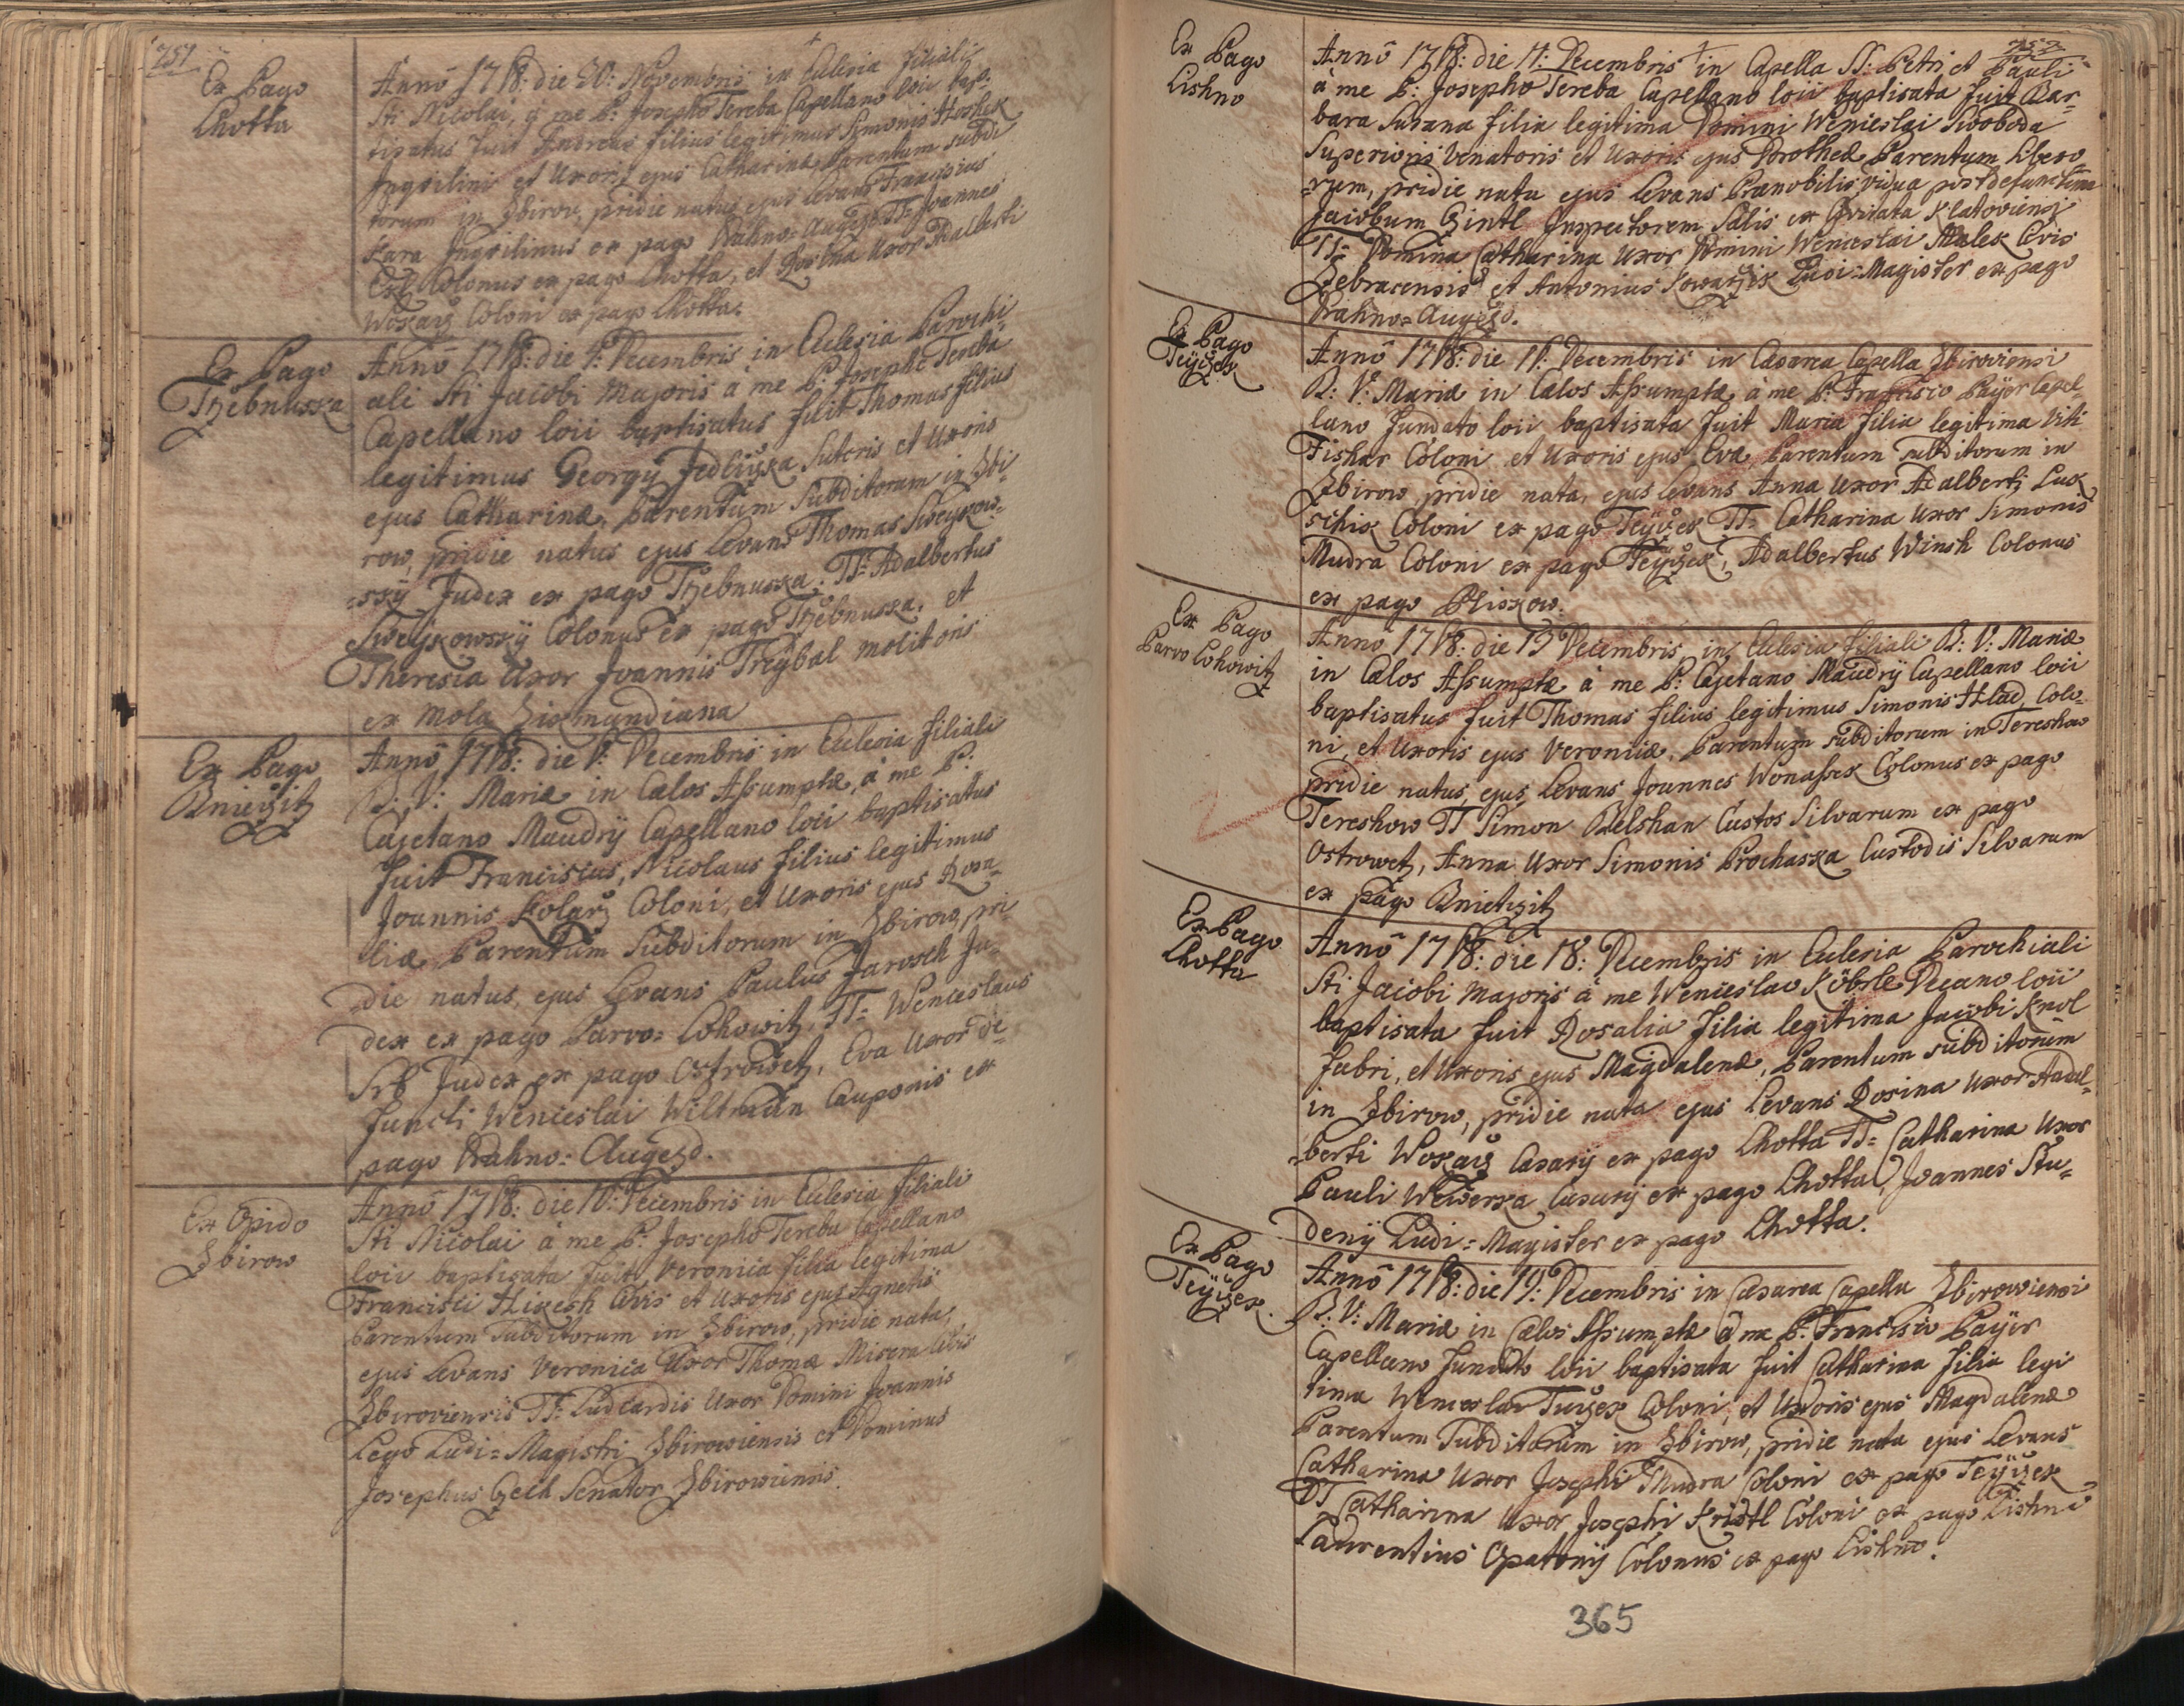 751
Ex Pago
Lhotta
Annô 1768: die 20: Novembris in Eclesia filiali
Sti Nicolai, a me P: Josepho Tereba Capellano loci bap-
tisatus fuit Andreas filius legitimus Simonis Hoshek
Inquilini et Uxoris ejus Catharinæ, Parentum subdi
torum in Zbirow, pridie natus, ejus Levans Franciscus
Kara Inquilinus ex pago Drahno-Augezd TT: Joannes
Colonus ex pago Lhotta, et Rosina Uxor Adalberti
Wokarz Coloni ex pago Lhotta.
Ex Pago
Trzebnuska
Annô 1768: die 1: Decembris in Eclesia Parochi-
ali Sti Jacobi Majoris a me P: Josepho Tereba
Capellano loci baptisatus fuit Thomas filius
legitimus Georgy Jedliczka Sutoris et Uxoris
ejus Catharinæ, Parentum Subditorum in Zbi-
row, pridie natus ejus Levans Thomas Sweykow-
-sky Judex ex pago Trzebnuska. TT: Adalbertus
Sweykowsky Colonus ex pago Trzebnuska, et
Theresia Uxor Joannis Treybal molitoris
ex Mola Sigmundiana
Ex Pago
Kniezitz
Annô 1768: die Decembris in Eclesia filiali
B: V: Mariæ in Cælos Assumptæ, a me P:
Cajetano Maudry Capellano loci baptisatus
fuit Franciscus, Nicolaus filius legitimus
Joannis Kolarz Coloni, et Uxoris ejus Rosa-
liæ Parentum Subditorum in Zbirow, pri-
die natus, ejus Levans Paulus Jarosch Ju-
dex ex pago Parvo-Lohowitz, TT: Wenceslaus
Srb Judex ex pago Ostrowetz, Eva Uxor de-
functi Wenceslai Wiltman Cauponis ex
pago Drahno-Augezd.
Ex Opido
Zbirow
Annô 1768: die 10: Decembris in Eclesia filiali
Sti Nicolai a me P: Josepho Tereba Capellano
loci baptisata fuit Veronica filia legitima
Francisci Civis et Uxoris ejus Agnetis
Parentum Subditorum in Zbirow, pridie nata,
ejus Levans Veronica Uxor Thomæ Misera Civis
Zbiroviensis TT: Ludcardis Uxor Domini Joannis
Lego Ludi-Magistri Zbirowiensis et Dominus
Josephus Czech Senator Zbirowiensis.
752
Ex Pago
Lishno
Annô 1768: die 11: Decembris in Capella SS: Petri et Pauli
à me P: Josepho Tereba Capellano loci baptisata fuit Bar-
bara Susana filia legitima Domini Wenceslai Swoboda
Superioris Venatoris et Uxoris ejus Dorotheæ Parentum Libero-
-rum, pridie nata ejus Levans Prænobilis vidua post defunctum
Jacobum Gintl Inspectorem Salis ex Civitata Klatoviensi
TT: Domina Catharina Uxor Domini Wenceslai Malek Civis
Zebracensis et Antonius Kowarzik Ludi-Magister ex pago
Drahno-Augezd.
Ex Pago
Teyczek
Annô 1768: die 11: Decembris in Cæsarea Capella Zbiroviensi
B: V: Mariæ in Cælos Assumptæ à me P: Francisco Payer Capel
lano fundato loci baptisata fuit Maria filia legitima Viti
Fishar Coloni et Uxoris ejus Evæ, Parentum subditorum in
Zbirow, pridie nata, ejus Levans Anna Uxor Adalberti Luk
schik Coloni ex pago Teyczek TT: Catharina Uxor Simonis
Mudra Coloni ex pago Teyczek, Adalbertus Winsh Colonus
ex pago Pliskow.
Ex Pago
Parvo Lohowitz
Annô 1768: die 15 Decembris, in Eclesia filiali B: V: Mariæ
in Cælos Assumptæ à me P: Cajetano Maudry Capellano loci
baptisatus fuit Thomas filius legitimus Simonis Hlad Colo-
ni, et Uxoris ejus Veronicæ, Parentum subditorum in Tereshow
pridie natus, ejus Levans Joannes Wonassek Colonus ex pago
Tereshow TT Simon Belshan Custos Silvarum ex pago
Ostrowetz, Anna Uxor Simonis Prochaska Custodis Silvarum
ex pago Knietzitz
Ex Pago
Lhotta
Annô 1768: die 18: Decembris in Eclesia Parochiali
Sti Jacobi Majoris à me Wenceslao Köbrle Decano loci
baptisata fuit Rosalia filia legitima Jacobi Knol
Fabri, et Uxoris ejus Magdalenæ, Parentum subditorum
in Zbirow, pridie nata ejus Levans Rosina Uxor Adal-
-berti Wokarz Casarij ex pago Lhotta TT: Catharina Uxor
Pauli Wewerka Casarij ex pago Lhotta, Joannes Stu-
deny Ludi-Magister ex pago Lhotta.
Ex Pago
Teyczek.
Annô 1768: die 19: Decembris in Cæsarea Capella Zbirowiensi
B: V: Mariæ in Cælos Assumptæ à me P: Francisco Payer
Capellano fundato loci baptisata fuit Catharina filia legi
tima Wenceslai Turzek Coloni, et Uxoris ejus Magdalenæ
Parentum Subditorum in Zbirow, pridie nata ejus Levans
Catharina Uxor Josephi Mudra Coloni ex pago Teyczek
TT Catharina Uxor Josephi Kristl Coloni ex pago Lishno
Laurentius Opatrny Colonus ex pago Lishno.
365